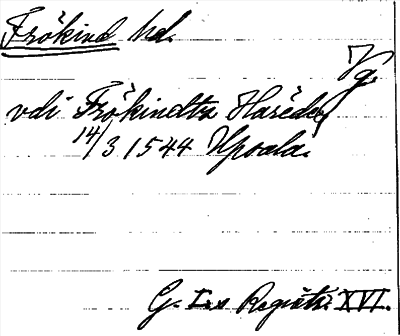 Frökind hd.
Vg.
vdi Frökindtz Häredet
14/3 1544 Upsala.
G. I:s Registr. XVI.